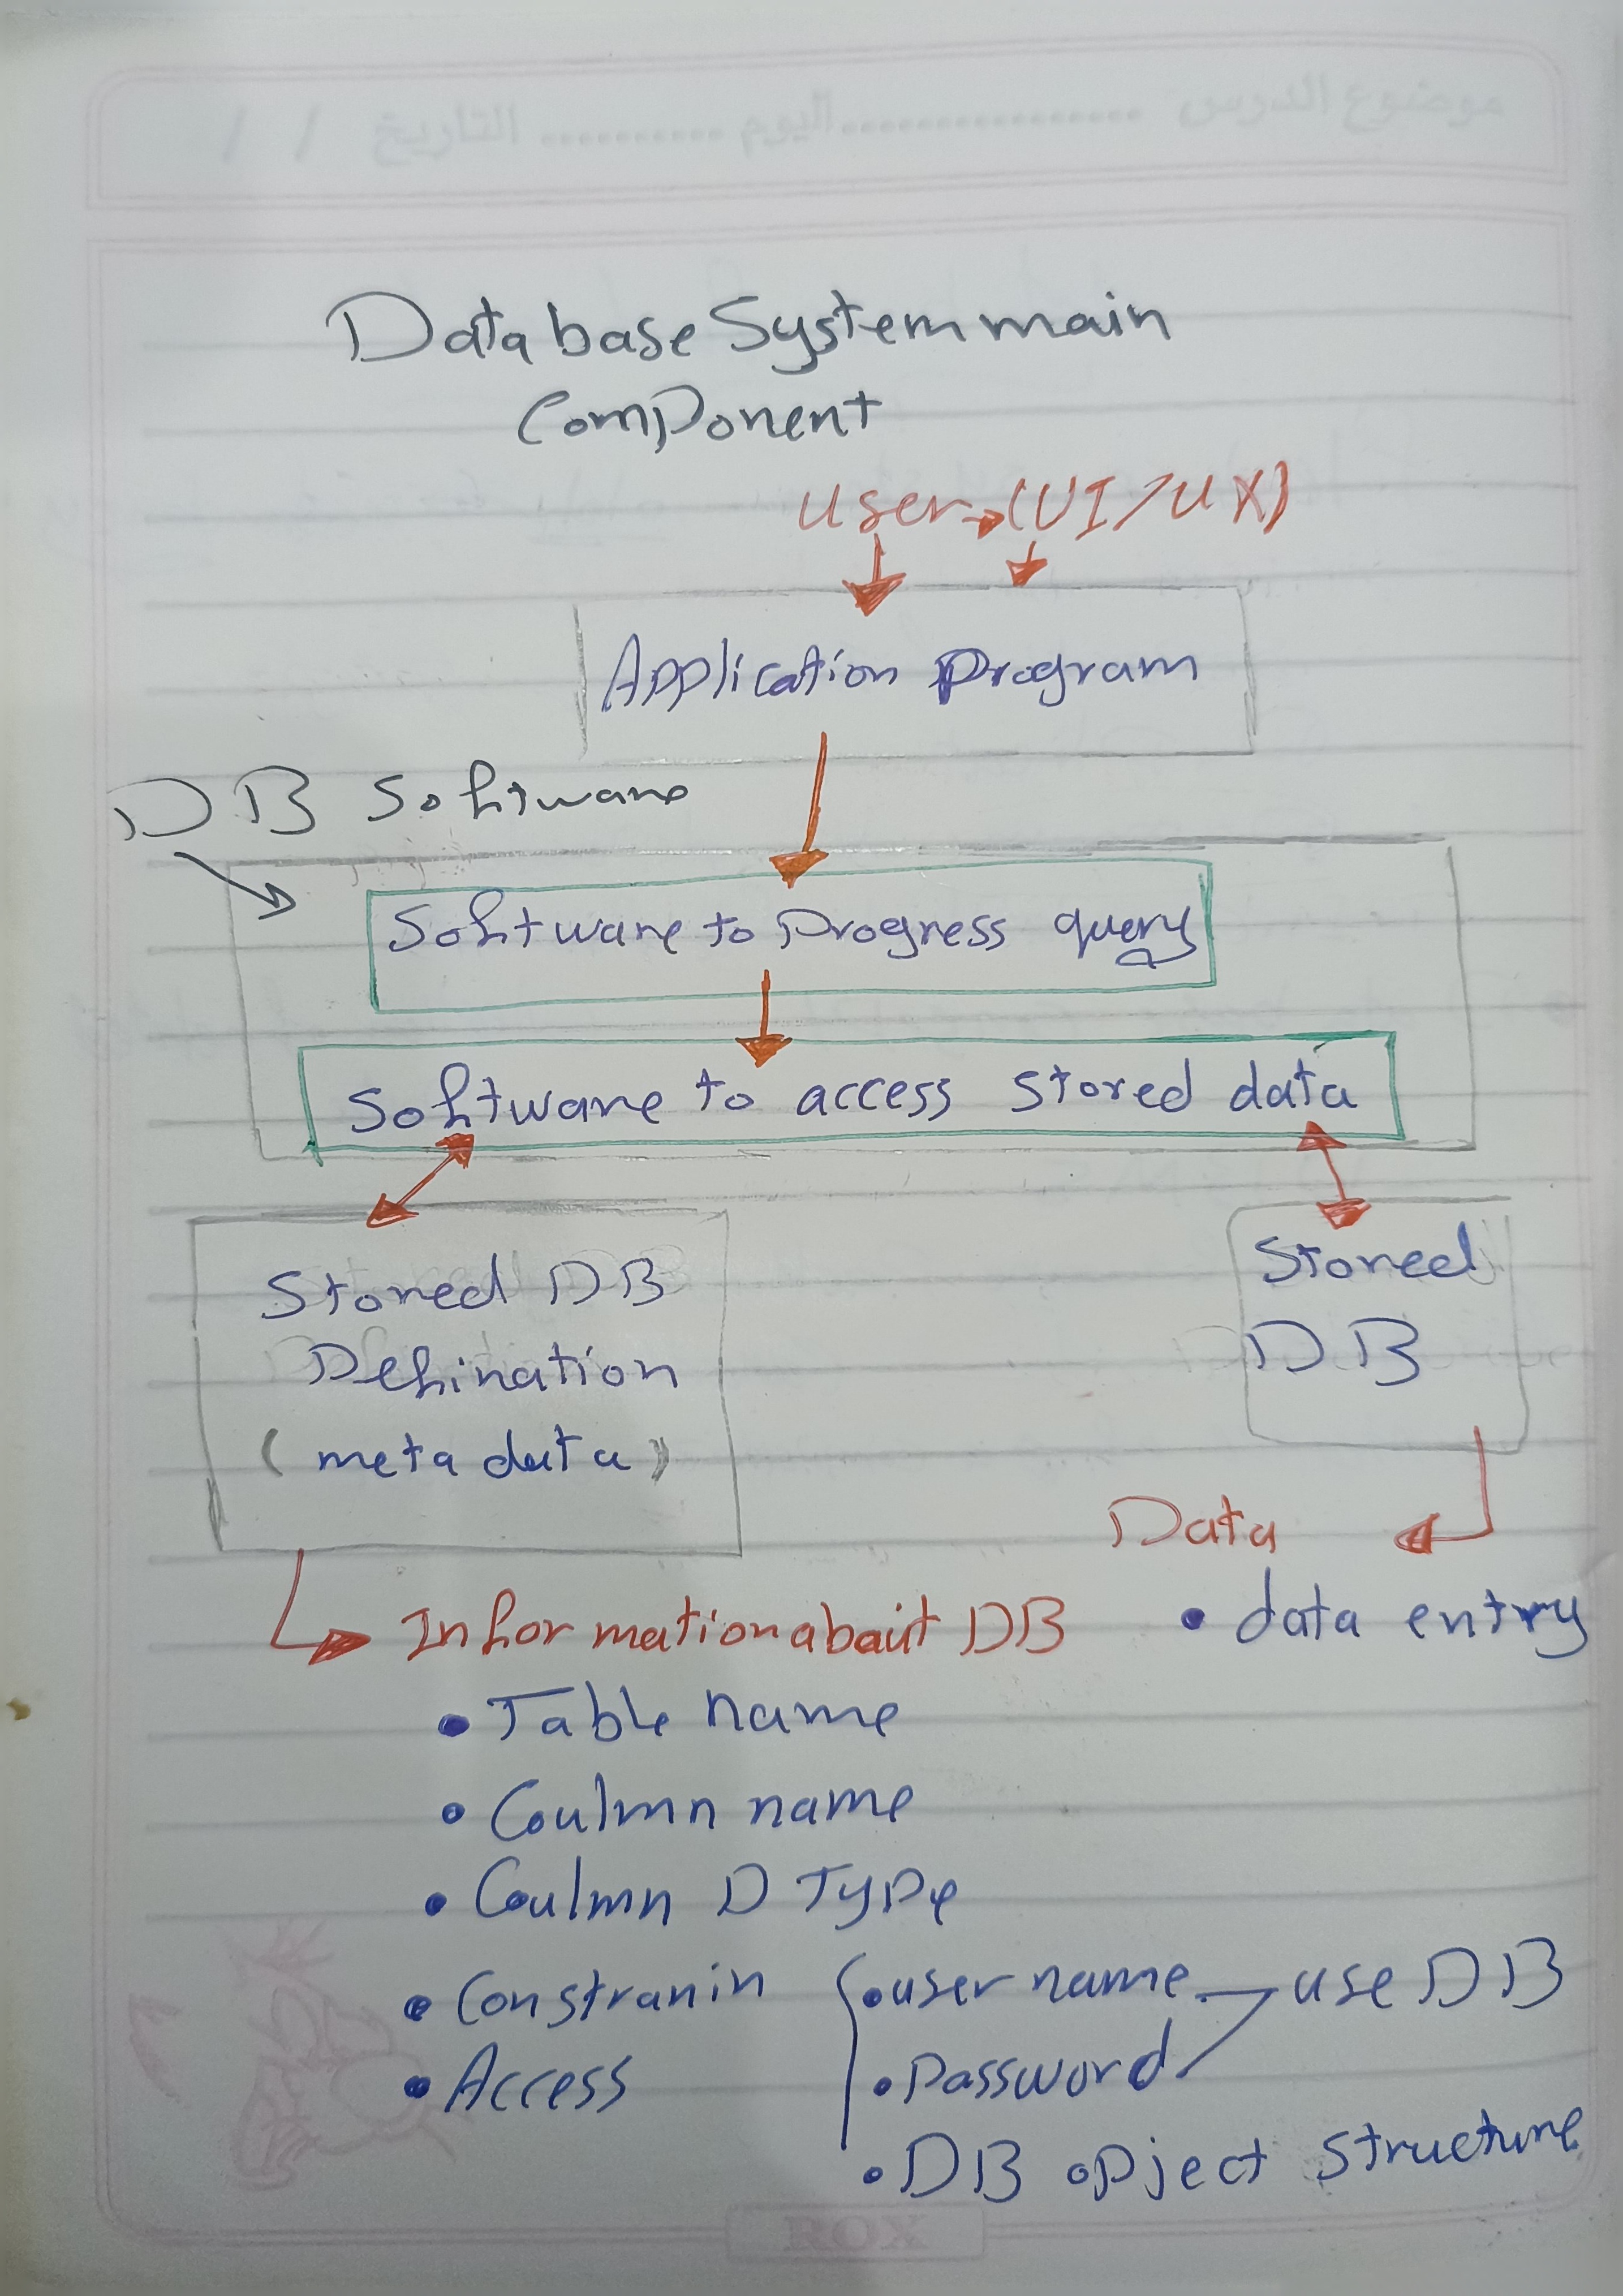 موضوع الدرس ................ اليوم .......... التاريخ / /
Database System main
Component
user → (UI/UX)
Application Program
DB Software
Software to Progress query
Software to access stored data
Stored DB
Defination
(meta data)
Stored
DB
Data
• data entry
Information abaut DB
• Table name
• Coulmn name
• Coulmn D Type
• Constranin
• Access
• user name
use DB
• Password
• DB opject structure
ROX